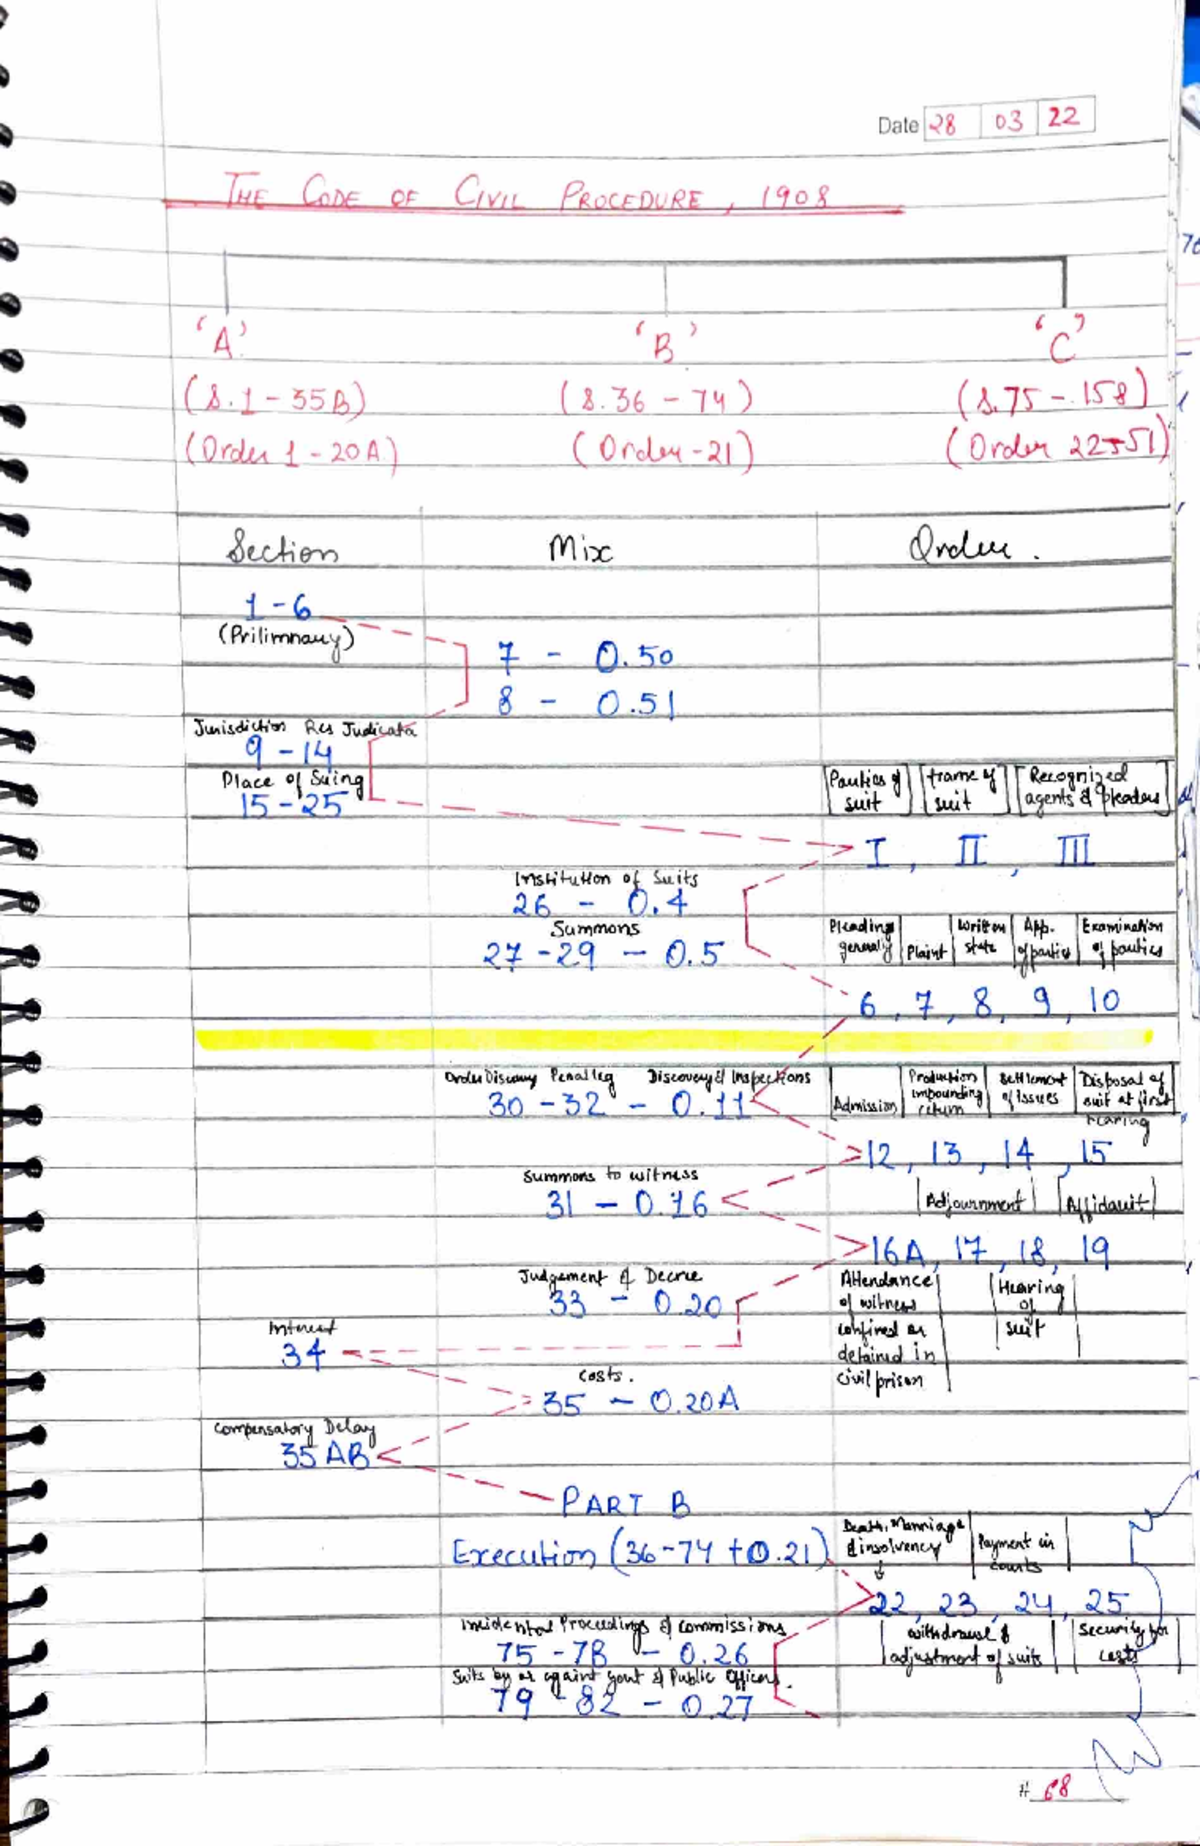 Date 28 03 22
THE CODE OF CIVIL PROCEDURE, 1908
'A' 'B' 'C'
(S.1-35B) (S.36-74) (S.75-158)
(Order 1-20A) (Order-21) (Order 22-51)
Section Mix Order.
1-6
(Prilimnary)
7 - O.50
8 - O.51
Jurisdiction Res Judicata
9-14
Place of Suing
15-25
Parties of suit frame of suit Recognized agents & pleaders
I, II, III
Institution of Suits
26 - O.4
Summons
27-29 - O.5
Pleading generally Plaint Written state App. of parties Examination of parties
6, 7, 8, 9, 10
Order Discovery Penalty Discovery & Inspections
30-32 - O.11
Admission Production impounding return Settlement of issues Disposal of suit at first hearing
12, 13, 14, 15
Summons to witness
31 - O.16
Adjournment Affidavit
16A, 17, 18, 19
Attendance of witness confined or detained in civil prison
Hearing of suit
Judgement & Decree
33 - O.20
Interest
34
Costs.
35 - O.20A
Compensatory Delay
35AB
PART B
Execution (36-74 + O.21)
Death, Marriage & insolvency Payment in courts
22, 23, 24, 25
withdrawl & adjustment of suits Security for costs
Incidental Proceedings & commissions
75-78 - O.26
Suits by or againt Gout & Public Officers.
79-82 - O.27
# 68